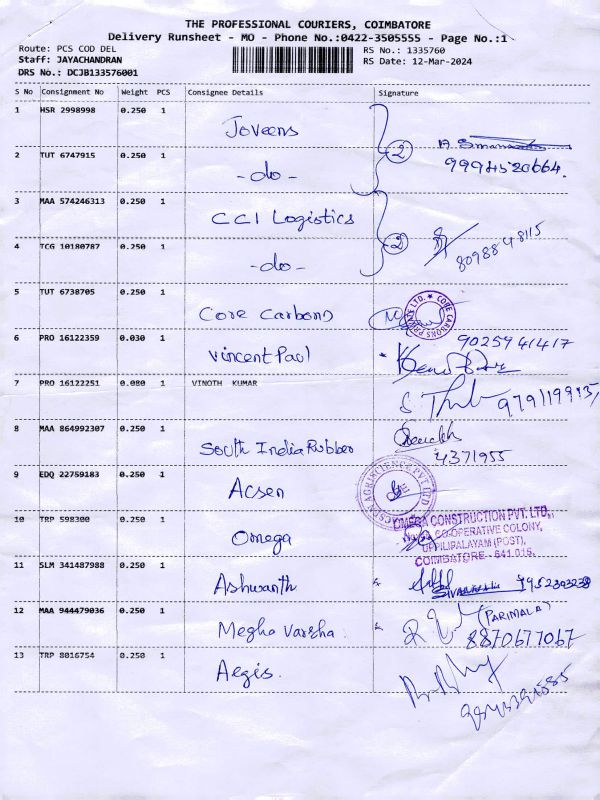 THE PROFESSIONAL COURIERS, COIMBATORE
Delivery Runsheet - MO - Phone No.:0422-3505555 - Page No.:1
Route: PCS COD DEL
RS No.: 1335760
Staff: JAYACHANDRAN
RS Date: 12-Mar-2024
DRS No.: DCJB133576001
S No Consignment No Weight PCS Consignee Details Signature
1 HSR 2998998 0.250 1 Joveens
2 TUT 6747915 0.250 1 -do- 2
3 MAA 574246313 0.250 1 CCI Logistics
4 TCG 10180787 0.250 1 -do- 2 8098848115
5 TUT 6738705 0.250 1 Core Carbons CORE CARBONS PRIVATE LTD.
6 PRO 16122359 0.030 1 Vincent Paul 9025941417
7 PRO 16122251 0.080 1 VINOTH KUMAR
8 MAA 864992307 0.250 1 South India Rubber 4371955
9 EDQ 22759183 0.250 1 Acsen ACSEN AGRISCIENCE PVT LTD
10 TRP 598300 0.250 1 Omega
OMEGA CONSTRUCTION PVT. LTD,
CO-OPERATIVE COLONY,
UPPILIPALAYAM (POST),
COIMBATORE - 641 015.
11 SLM 341487988 0.250 1 Ashwanth
12 MAA 944479036 0.250 1 Megha Varsha (PARIMALA)
8870677067
13 TRP 8016754 0.250 1 Aegis.